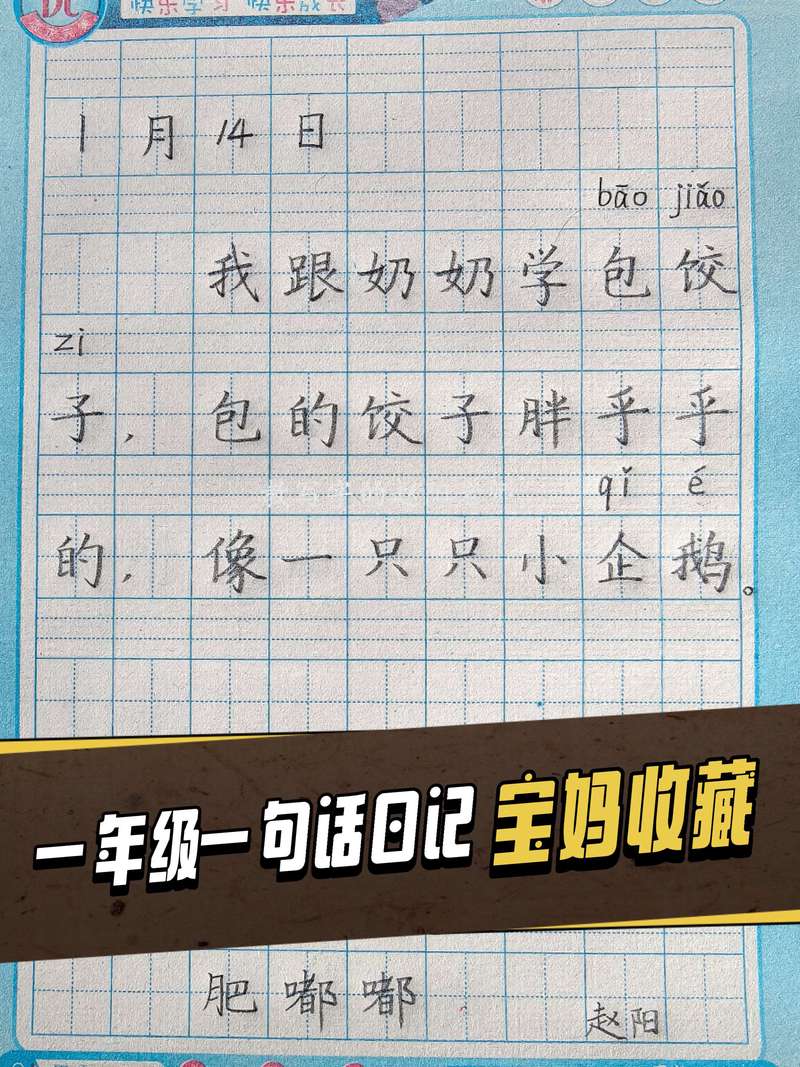 快乐学习 快乐成长
1月14日
bāo jiǎo
我跟奶奶学包饺
zi
子，包的饺子胖乎乎
qǐ é
的，像一只只小企鹅。
一年级一句话日记 宝妈收藏
肥嘟嘟
赵阳